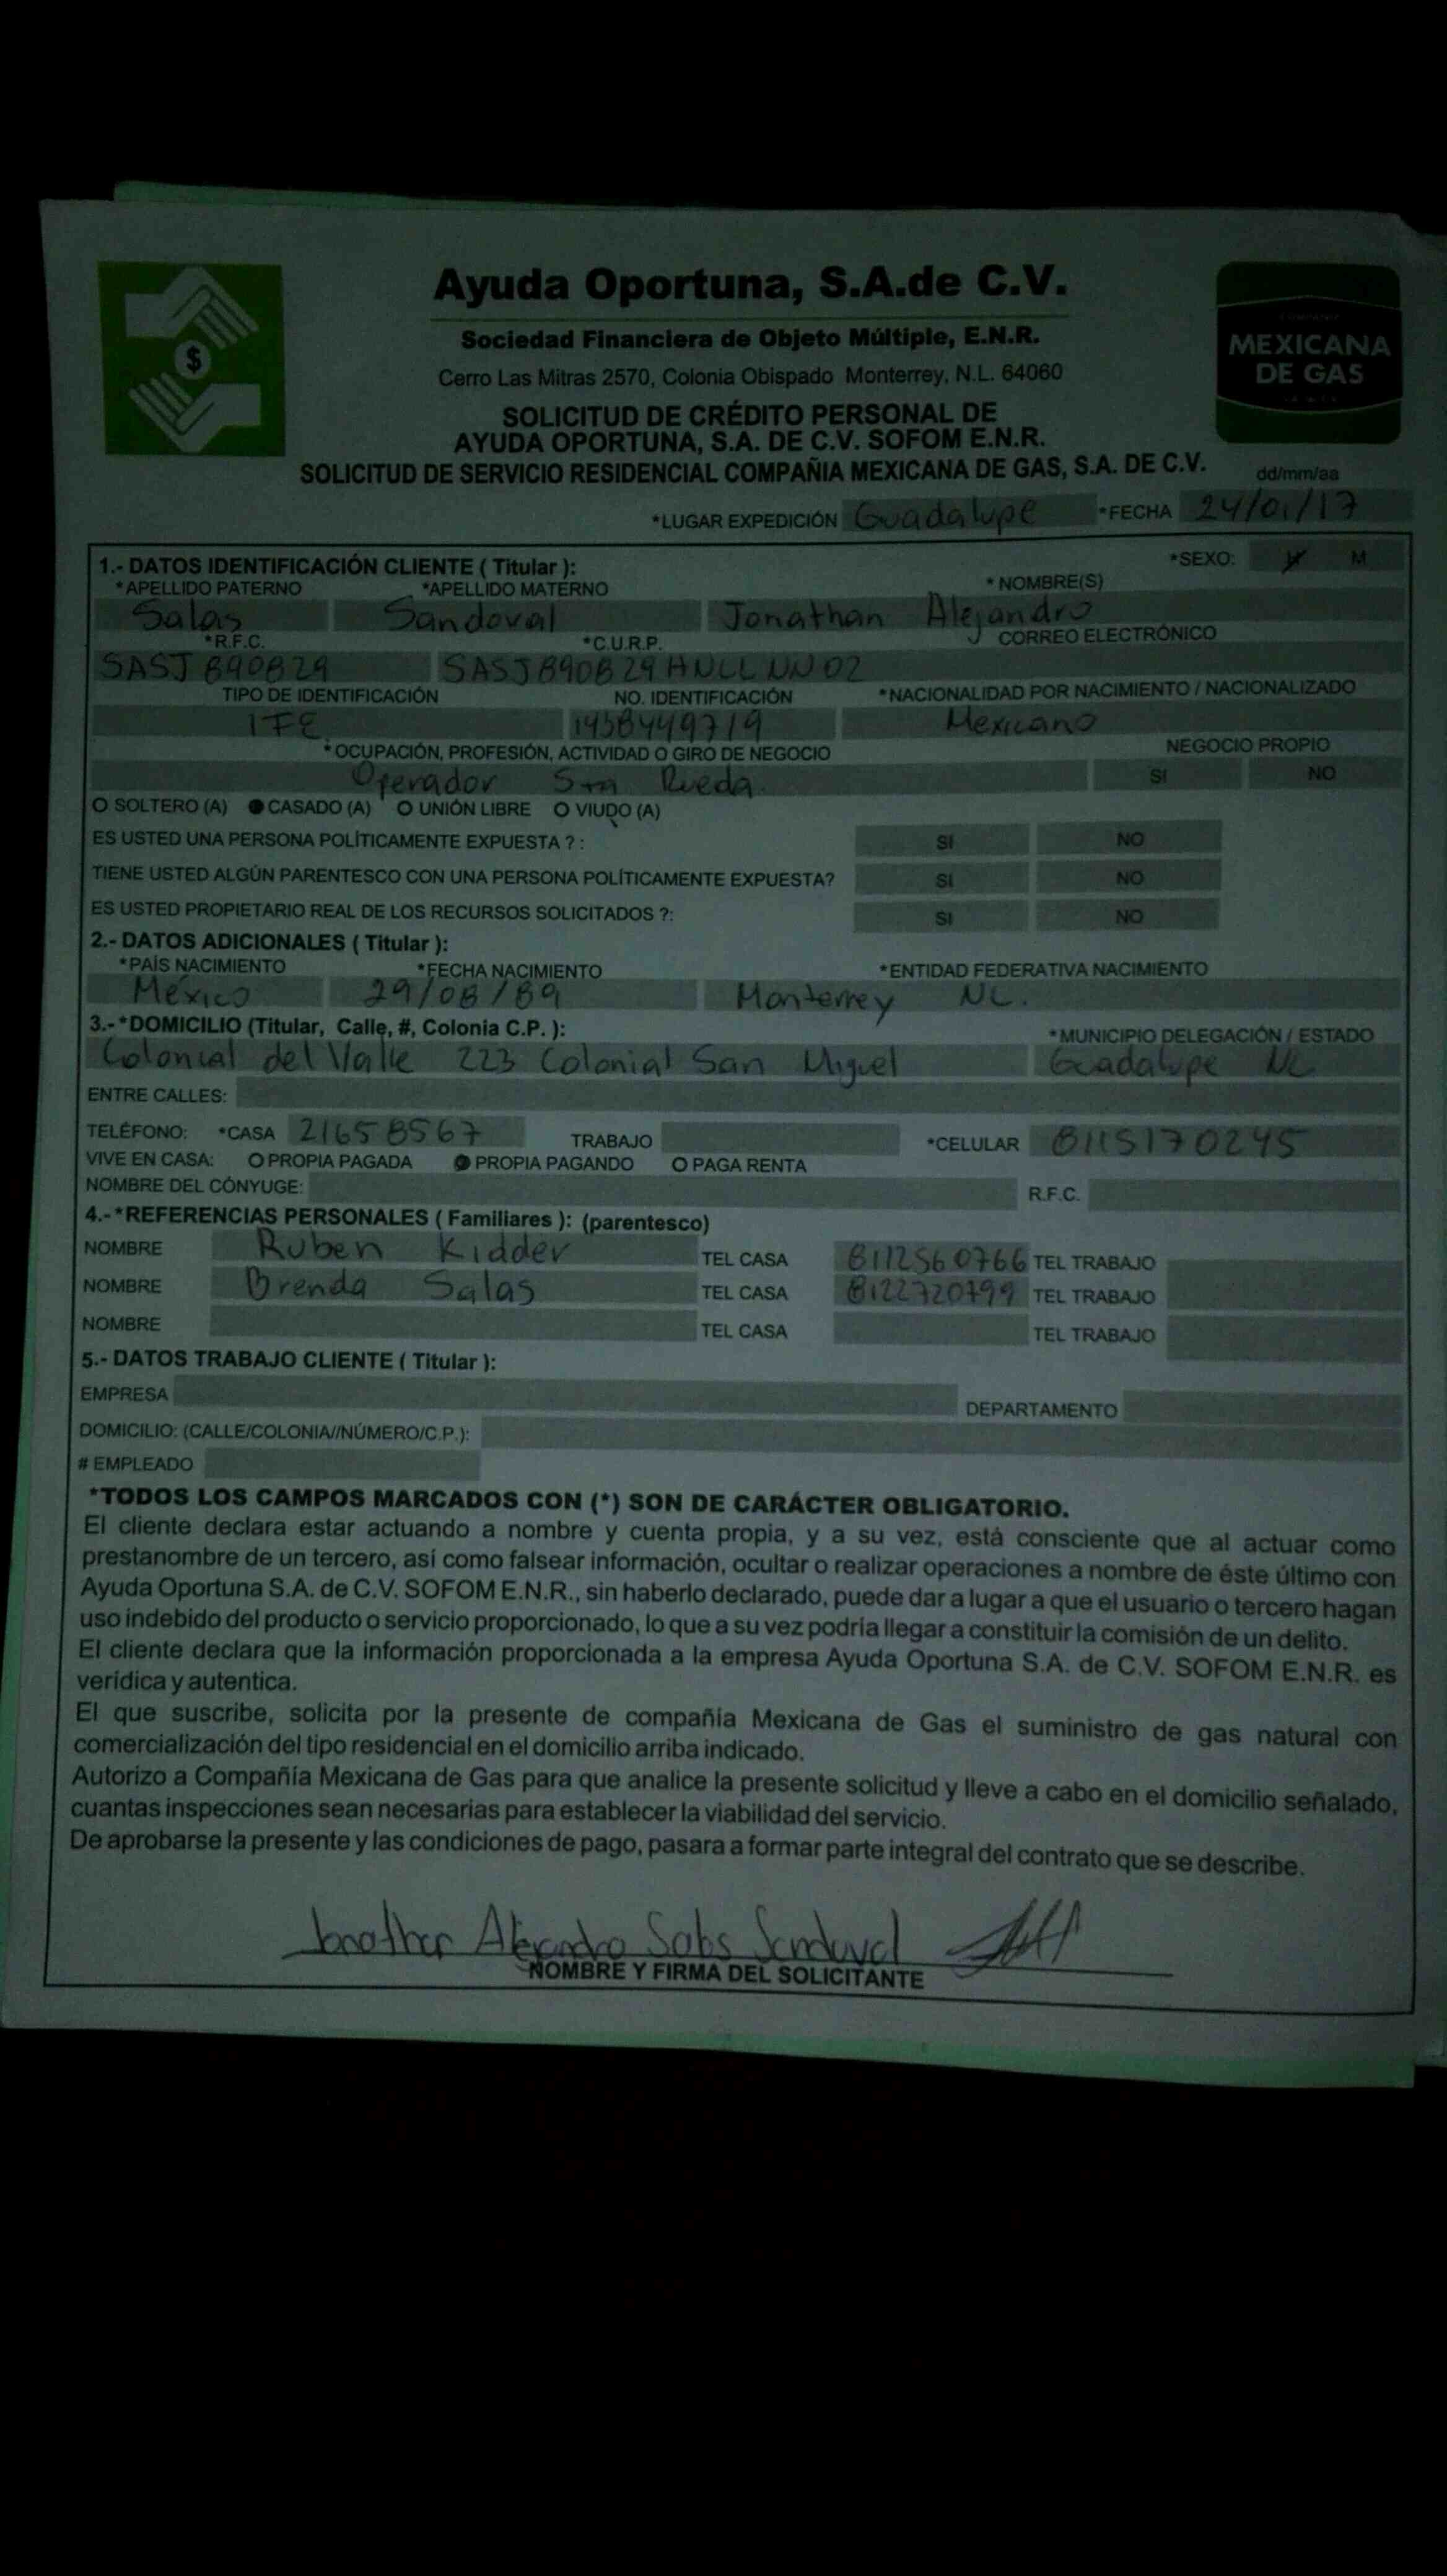 Ayuda Oportuna, S.A.de C.V.
Sociedad Financiera de Objeto Múltiple, E.N.R.
Cerro Las Mitras 2570, Colonia Obispado Monterrey, N.L. 64060
MEXICANA
DE GAS
SOLICITUD DE CRÉDITO PERSONAL DE
AYUDA OPORTUNA, S.A. DE C.V. SOFOM E.N.R.
SOLICITUD DE SERVICIO RESIDENCIAL COMPAÑIA MEXICANA DE GAS, S.A. DE C.V.
dd/mm/aa
*LUGAR EXPEDICIÓN Guadalupe *FECHA 24/01/17
1.- DATOS IDENTIFICACIÓN CLIENTE ( Titular ): *SEXO: H M
*APELLIDO PATERNO *APELLIDO MATERNO * NOMBRE(S)
Salas Sandoval Jonathan Alejandro
*R.F.C. *C.U.R.P. CORREO ELECTRÓNICO
SASJ890829 SASJ890829HNLLNN02
TIPO DE IDENTIFICACIÓN NO. IDENTIFICACIÓN *NACIONALIDAD POR NACIMIENTO / NACIONALIZADO
IFE 1458449719 Mexicano
*OCUPACIÓN, PROFESIÓN, ACTIVIDAD O GIRO DE NEGOCIO NEGOCIO PROPIO
Operador Rueda SI NO
O SOLTERO (A) CASADO (A) O UNIÓN LIBRE O VIUDO (A)
ES USTED UNA PERSONA POLÍTICAMENTE EXPUESTA ? : SI NO
TIENE USTED ALGÚN PARENTESCO CON UNA PERSONA POLÍTICAMENTE EXPUESTA? SI NO
ES USTED PROPIETARIO REAL DE LOS RECURSOS SOLICITADOS ?: SI NO
2.- DATOS ADICIONALES ( Titular ):
*PAÍS NACIMIENTO *FECHA NACIMIENTO *ENTIDAD FEDERATIVA NACIMIENTO
México 29/08/89 Monterrey NL.
3.-*DOMICILIO (Titular, Calle, #, Colonia C.P. ): *MUNICIPIO DELEGACIÓN / ESTADO
Colonial del Valle 223 Colonial San Miguel Guadalupe NL
ENTRE CALLES:
TELÉFONO: *CASA 21658567 TRABAJO *CELULAR 8115170245
VIVE EN CASA: O PROPIA PAGADA PROPIA PAGANDO O PAGA RENTA
NOMBRE DEL CÓNYUGE: R.F.C.
4.-*REFERENCIAS PERSONALES ( Familiares ): (parentesco)
NOMBRE Ruben Kidder TEL CASA 8112560766 TEL TRABAJO
NOMBRE Brenda Salas TEL CASA 8122720799 TEL TRABAJO
NOMBRE TEL CASA TEL TRABAJO
5.- DATOS TRABAJO CLIENTE ( Titular ):
EMPRESA DEPARTAMENTO
DOMICILIO: (CALLE/COLONIA//NÚMERO/C.P.):
# EMPLEADO
*TODOS LOS CAMPOS MARCADOS CON (*) SON DE CARÁCTER OBLIGATORIO.
El cliente declara estar actuando a nombre y cuenta propia, y a su vez, está consciente que al actuar como
prestanombre de un tercero, así como falsear información, ocultar o realizar operaciones a nombre de éste último con
Ayuda Oportuna S.A. de C.V. SOFOM E.N.R., sin haberlo declarado, puede dar a lugar a que el usuario o tercero hagan
uso indebido del producto o servicio proporcionado, lo que a su vez podría llegar a constituir la comisión de un delito.
El cliente declara que la información proporcionada a la empresa Ayuda Oportuna S.A. de C.V. SOFOM E.N.R. es
verídica y autentica.
El que suscribe, solicita por la presente de compañía Mexicana de Gas el suministro de gas natural con
comercialización del tipo residencial en el domicilio arriba indicado.
Autorizo a Compañía Mexicana de Gas para que analice la presente solicitud y lleve a cabo en el domicilio señalado,
cuantas inspecciones sean necesarias para establecer la viabilidad del servicio.
De aprobarse la presente y las condiciones de pago, pasara a formar parte integral del contrato que se describe.
Jonathan Alejandro Salas Sandoval
NOMBRE Y FIRMA DEL SOLICITANTE